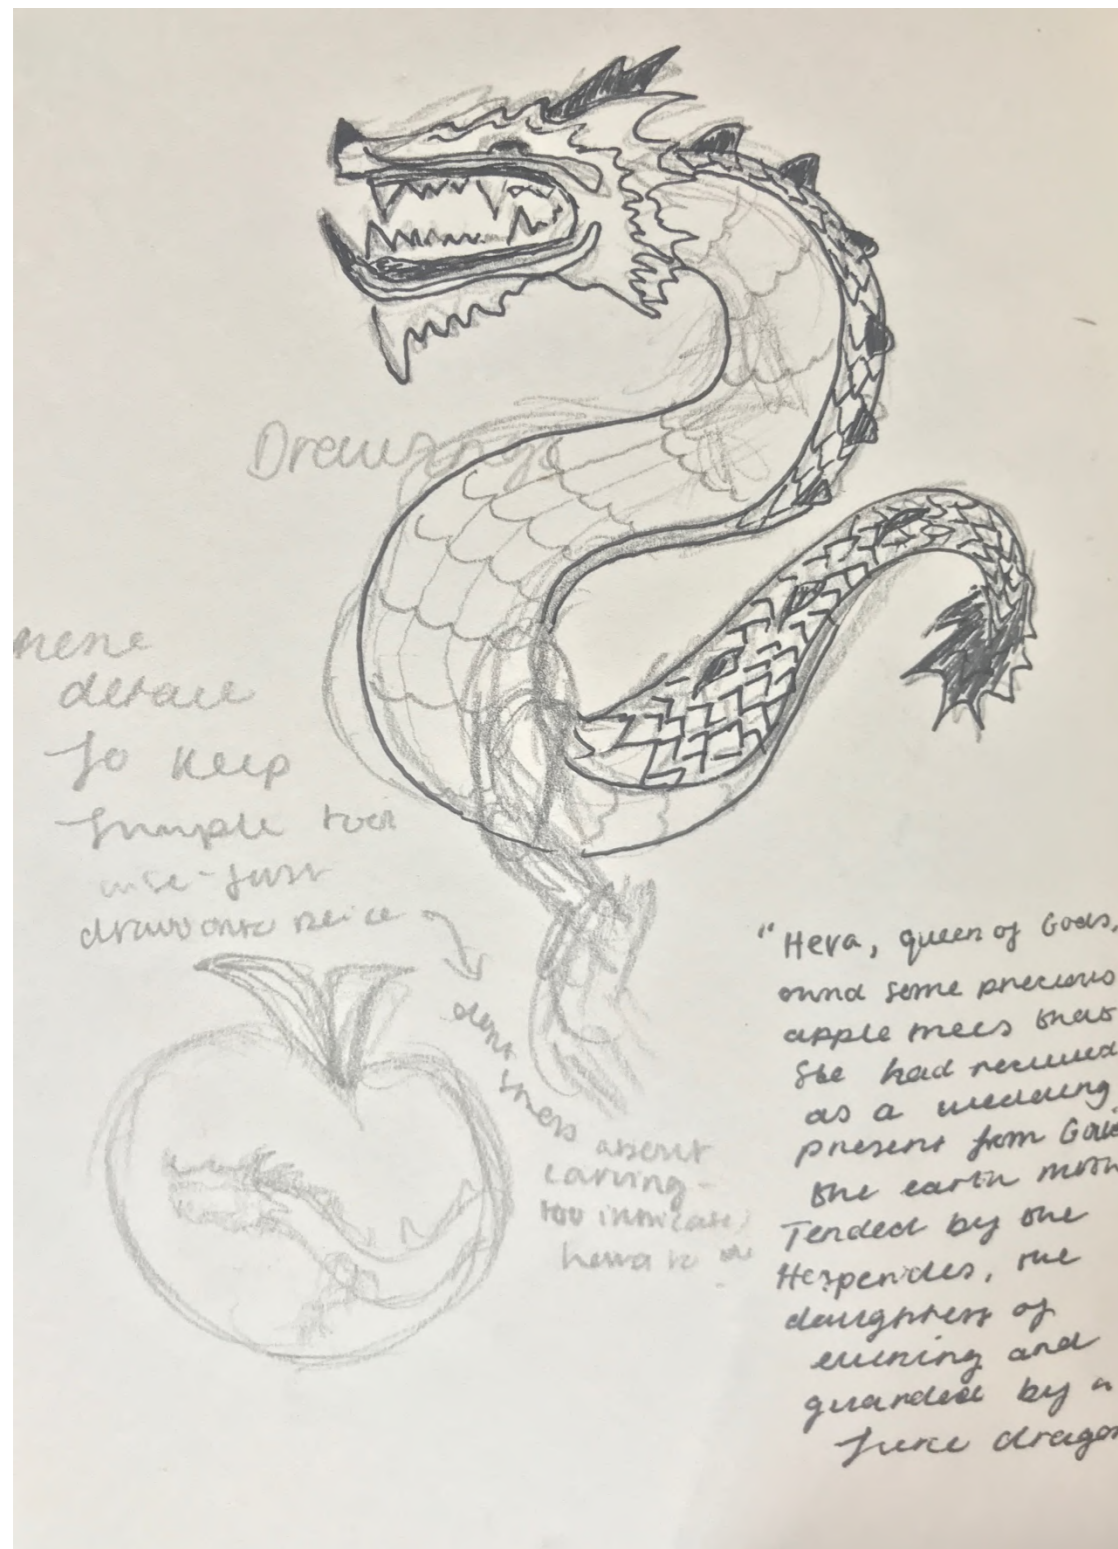 Drawings
more
detail
to keep
simple
just
draw onto piece
dont stress about
carving -
too intricate
"Hera, queen of Gods,
ownd some precious
apple trees that
She had received
as a wedding
present from Gaia
the earth moth
Tended by the
Hesperides, the
daughters of
evening and
guarded by a
fierce dragon